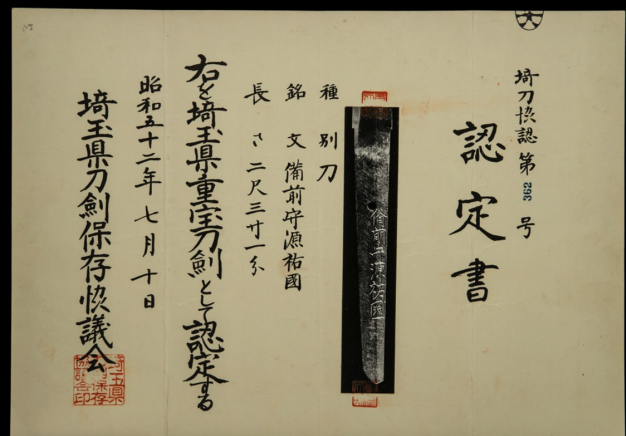 埼刀協認第362号
認定書
備前守源祐國
種別 刀
銘文 備前守源祐國
長さ 二尺三寸一分
右を埼玉県重宝刀劍として認定する
昭和五十二年七月十日
埼玉県刀劍保存協議会